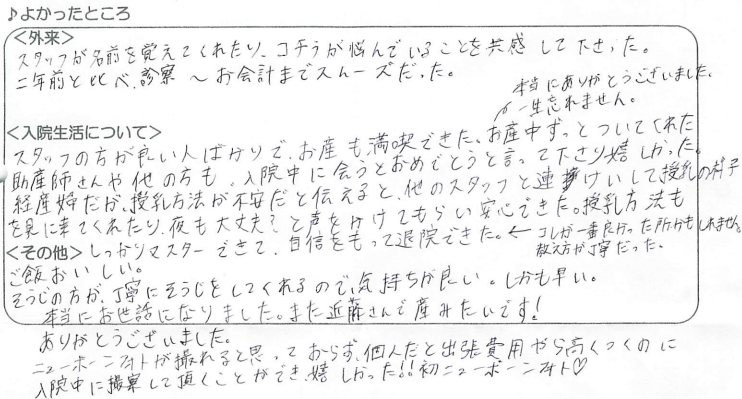 ♪よかったところ
<外来>
スタッフが名前を覚えてくれたり、コチラが悩んでいることを共感して下さった。
二年前と比べ、診察～お会計までスムーズだった。
本当にありがとうございました。
一生忘れません。
<入院生活について>
スタッフの方が良い人ばかりで、お産も満喫できた。お産中ずっとついてくれた
助産師さんや他の方も、入院中に会うとおめでとうと言って下さり嬉しかった。
経産婦だが、授乳方法が不安だと伝えると、他のスタッフと連けいして授乳の様子
を見に来てくれたり、夜も大丈夫？と声をかけてもらい安心できた。授乳方法も
<その他> しっかりマスターできて、自信をもって退院できた。← コレが一番良かった所かもしれません。
教え方が丁寧だった。
ご飯おいしい。
そうじの方が、丁寧にそうじをしてくれるので、気持ちが良い。しかも早い。
本当にお世話になりました。また近藤さんで産みたいです!
ありがとうございました。
ニューボーンフォトが撮れると思っておらず、個人だと出張費用やら高くつくのに
入院中に撮案して頂くことができ、嬉しかった!!初ニューボーンフォト♡